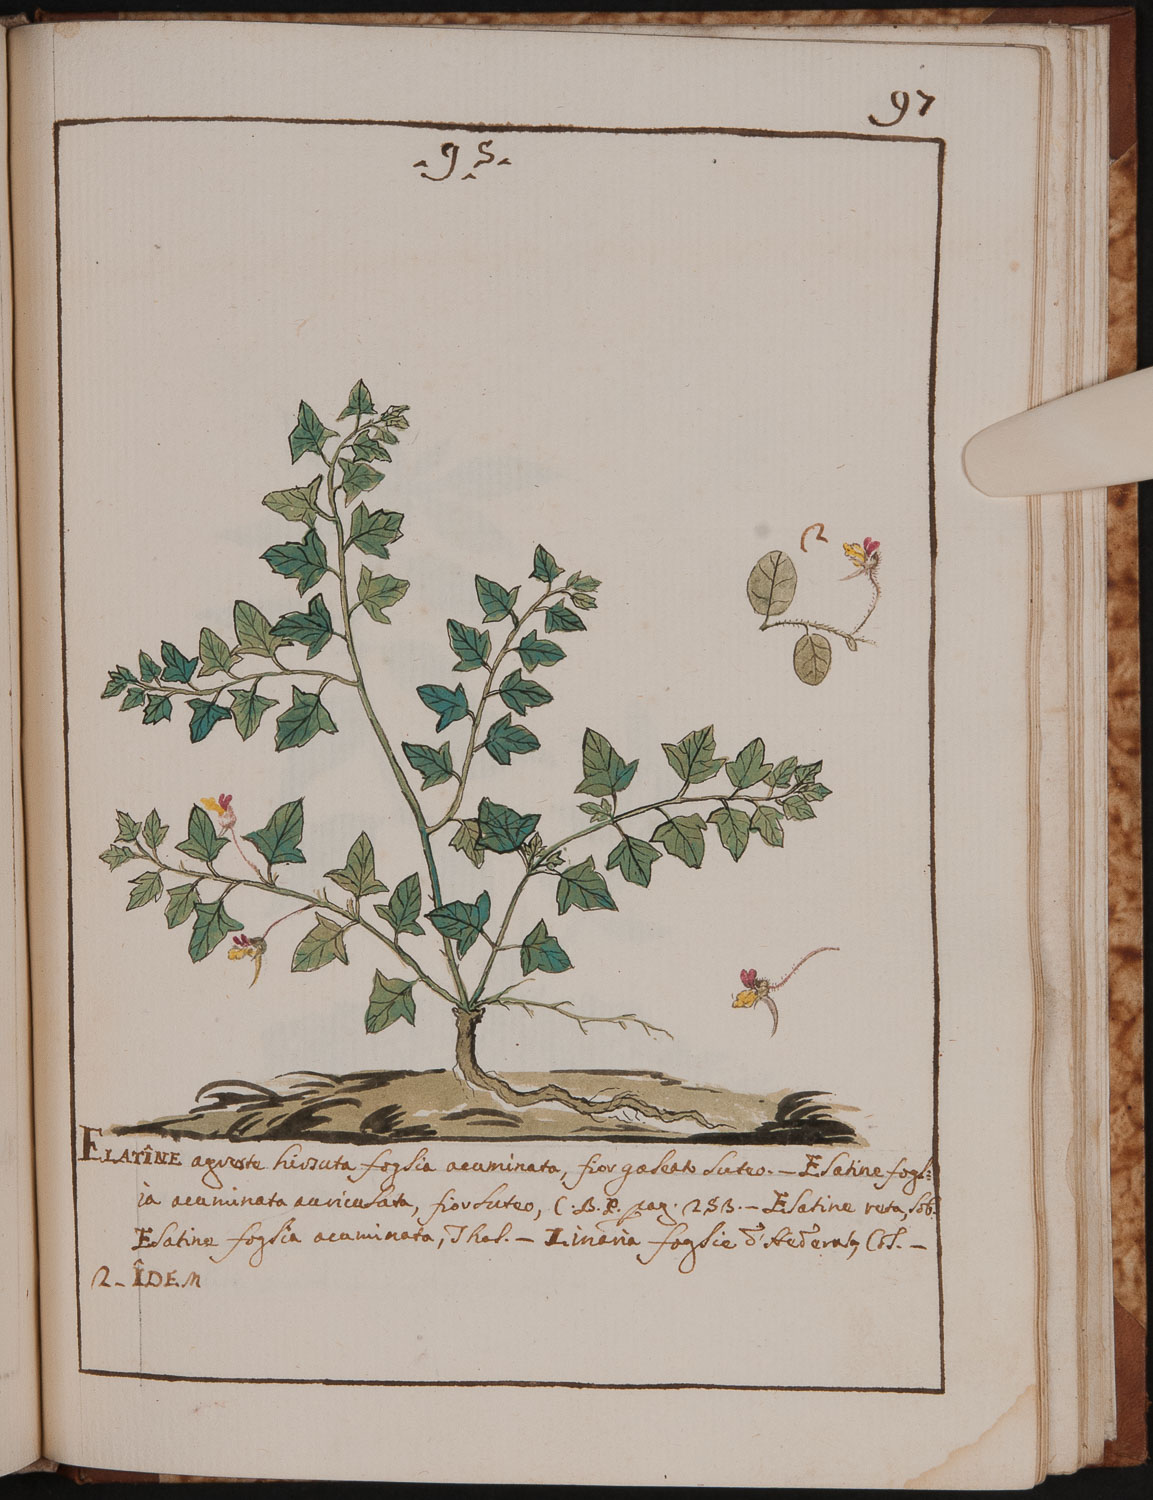 97
.95.
ELATÎNE agreste hirsuta foglia acuminata, fior galeato luteo. — Elatine fogl=
ia acuminata auriculata, fior luteo, C. B. P. pag. 253. — Elatine reta, Lob.
Elatine foglia acuminata, Thal. — Linaria foglie d'Aedera, Col. —
2 - ÎDEM
2